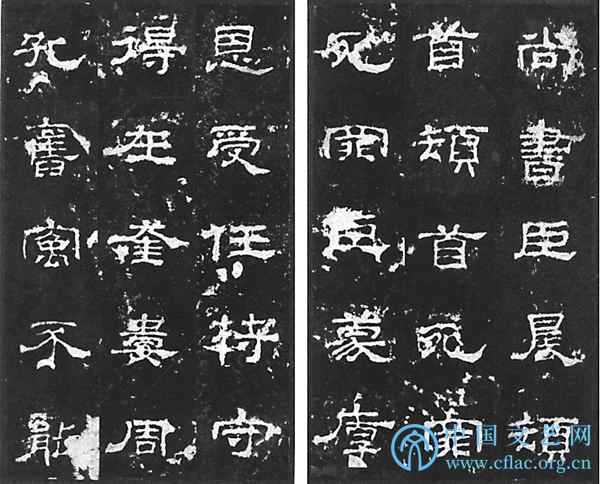 尚書臣晨頓
首頓首死罪
死罪臣蒙厚
恩受任符守
得在奎婁周
孔舊寓不能
中国文艺网
www.cflac.org.cn